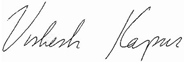 Vishesh Kapur